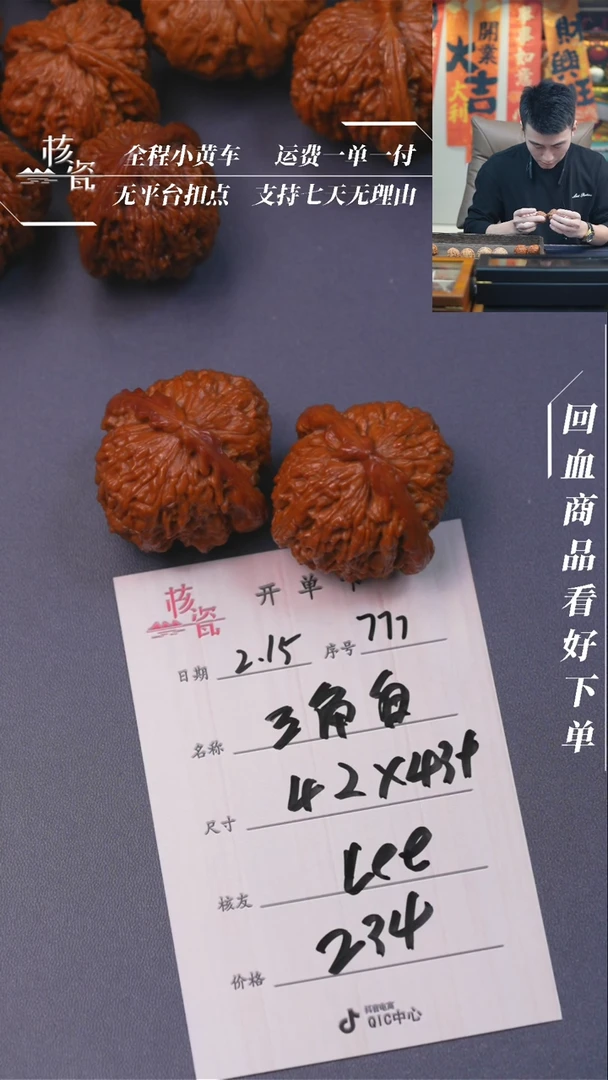 核瓷
全程小黄车 运费一单一付
无平台扣点 支持七天无理由
開業大吉
大利
事事如意
財興旺
回血商品看好下单
核瓷
开单
日期 2.15 序号 777
名称 三角兔
尺寸 42x43+
核友 Lee
价格 234
抖音电商
QIC中心